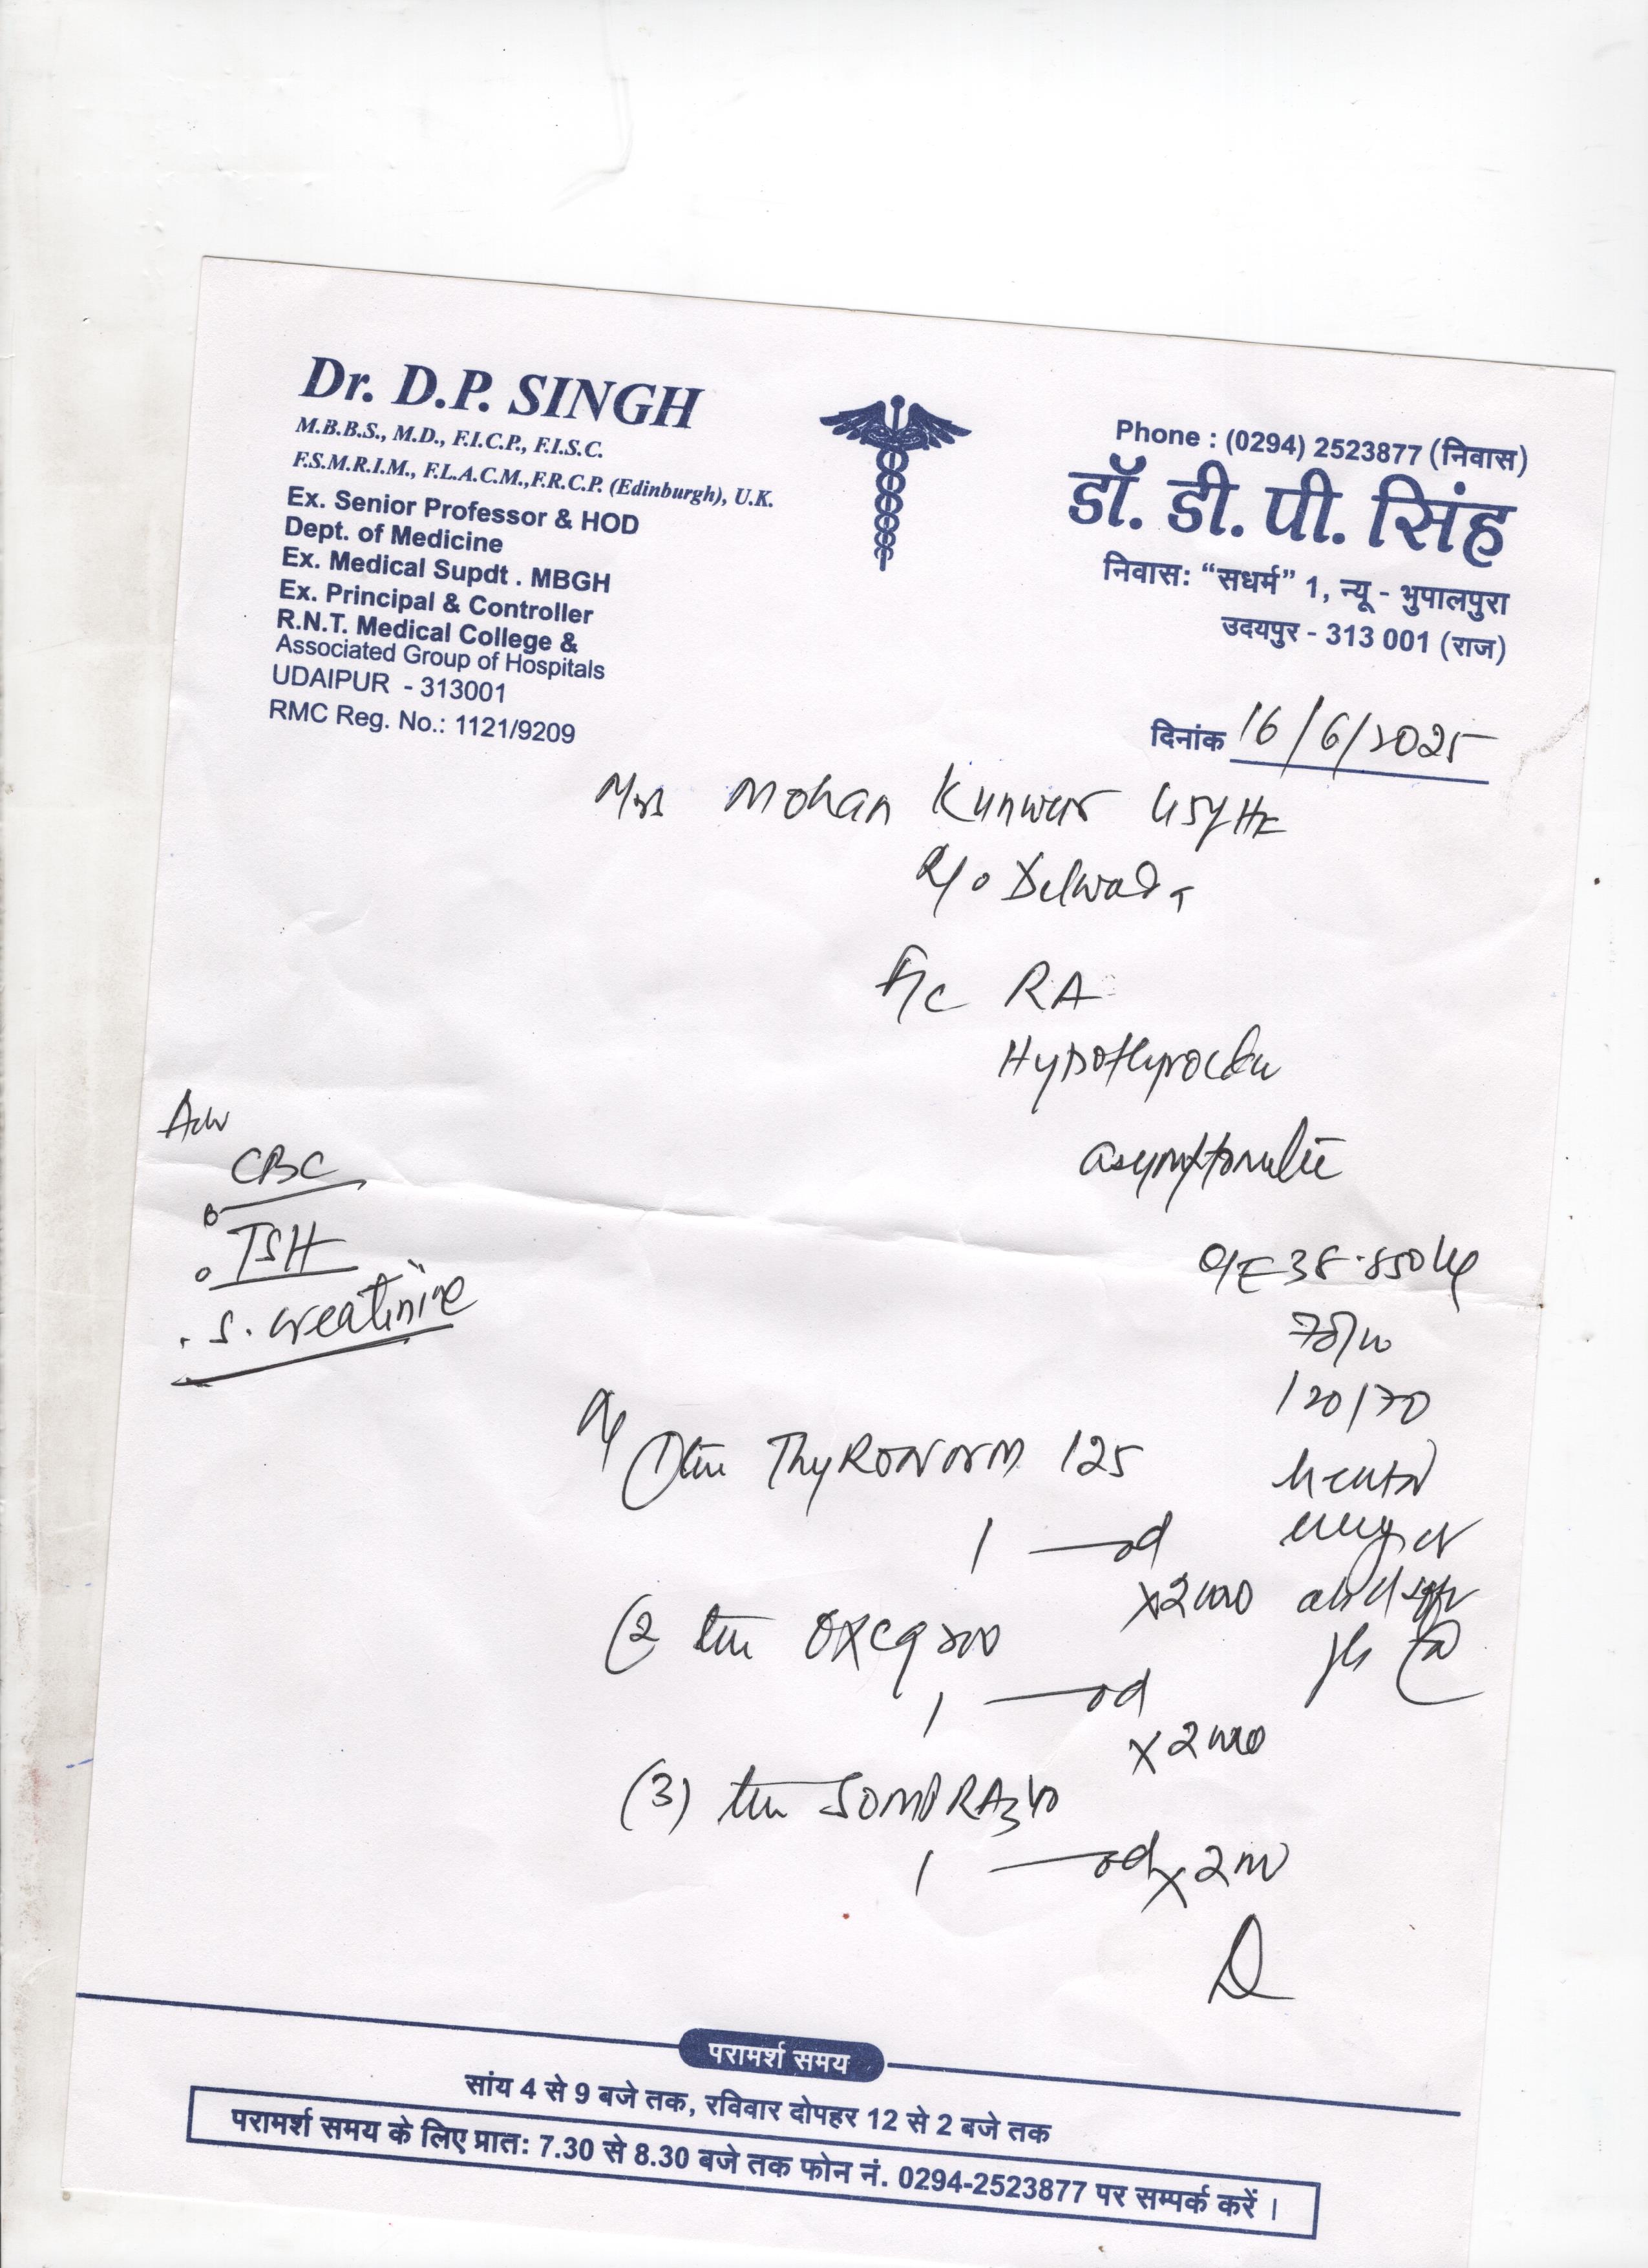 Dr. D.P. SINGH
M.B.B.S., M.D., F.I.C.P., F.I.S.C.
F.S.M.R.I.M., F.L.A.C.M.,F.R.C.P. (Edinburgh), U.K.
Ex. Senior Professor & HOD
Dept. of Medicine
Ex. Medical Supdt . MBGH
Ex. Principal & Controller
R.N.T. Medical College &
Associated Group of Hospitals
UDAIPUR - 313001
RMC Reg. No.: 1121/9209
Phone : (0294) 2523877 (निवास)
डॉ. डी. पी. सिंह
निवास: “सधर्म” 1, न्यू - भुपालपुरा
उदयपुर - 313 001 (राज)
दिनांक 16/6/2025
Mrs Mohan Kunwar
R/o Delwada
RA
asymptomatic
Adv
CBC
TSH
S. creatinine
O/E 38.850 Kg
78/m
120/70
Thyronorm 125
1 — od
x 2
(2
1 — od
x 2
(3) SOMPRAZ 40
1 — od x 2
परामर्श समय
सांय 4 से 9 बजे तक, रविवार दोपहर 12 से 2 बजे तक
परामर्श समय के लिए प्रात: 7.30 से 8.30 बजे तक फोन नं. 0294-2523877 पर सम्पर्क करें ।